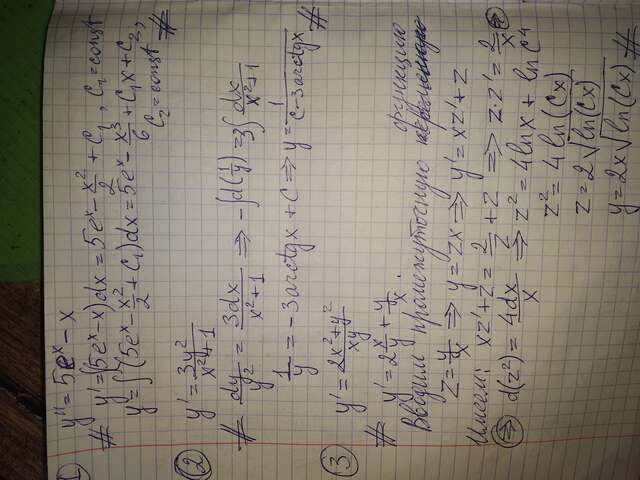 1) y'' = 5eˣ - x
# y' = ∫(5eˣ - x)dx = 5eˣ - x²/2 + C₁, C₁ = const
y = ∫(5eˣ - x²/2 + C₁)dx = 5eˣ - x³/6 + C₁x + C₂,
C₂ = const #
② y' = 3y²/(x²+1)
# dy/y² = 3dx/(x²+1) ⇒ -∫d(1/y) = 3∫dx/(x²+1)
1/y = -3arctgx + C ⇒ y = 1/(C-3arctgx) #
③ y' = (2x²+y²)/(xy)
# y' = 2x/y + y/x.
Вводим промежуточную функцию
z = y/x ⇒ y = zx ⇒ y' = xz' + z
Имеем: xz' + z = 2/z + z ⇒ z·z' = 2/x ⇒
⇒ d(z²) = 4dx/x ⇒ z² = 4lnx + lnC⁴
z² = 4ln(Cx)
z = 2√ln(Cx)
y = 2x√ln(Cx) #